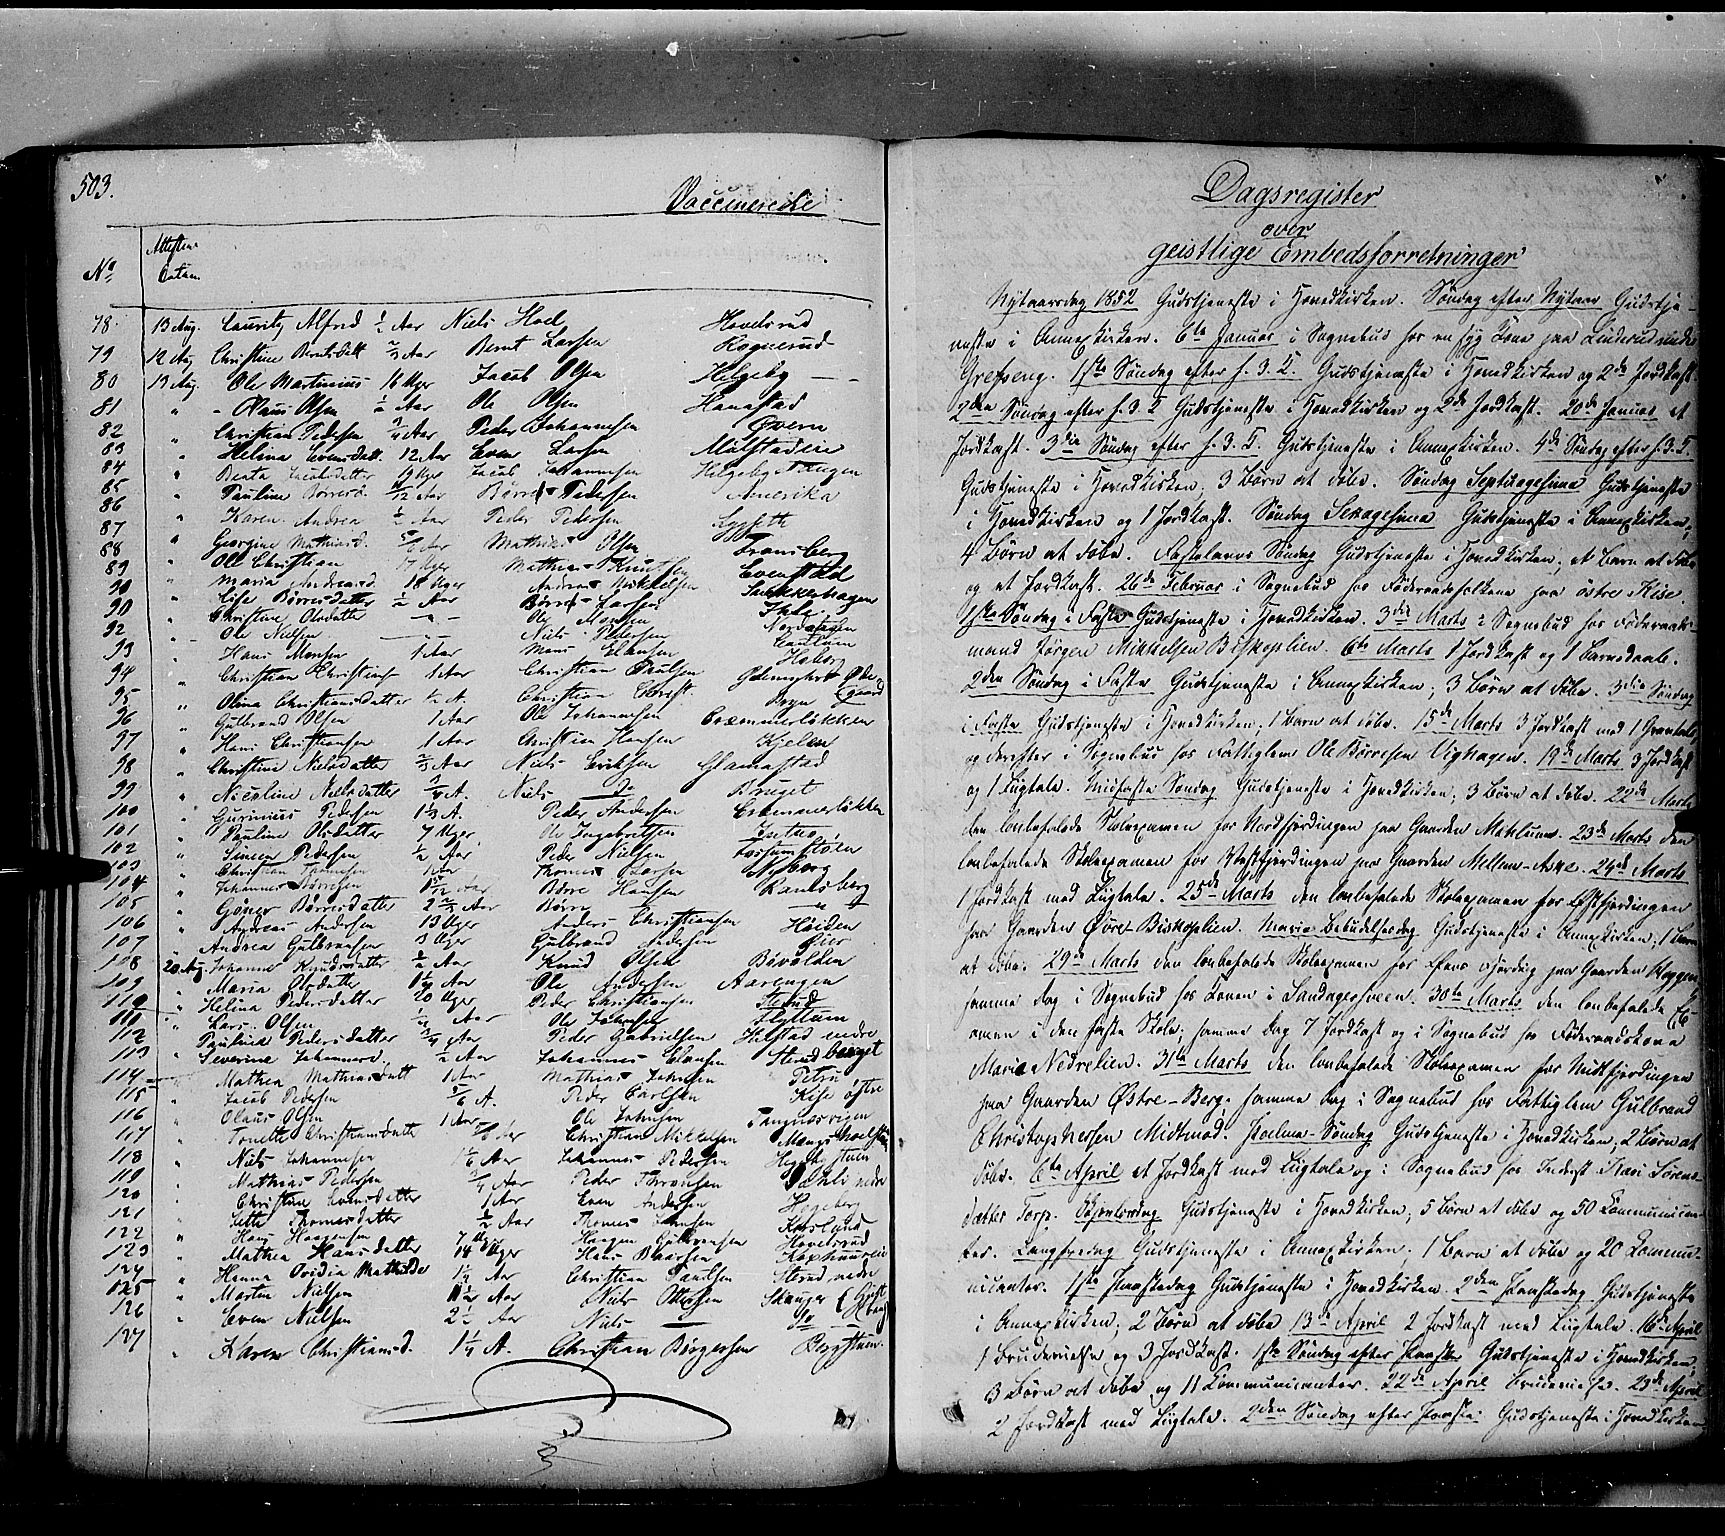 503.
Vaccinerede
No
Attestens
Datum
78. 13 Aug. Lauritz Alfred ½ Aar Niels Hoel Hovelsrud
79 12 Aug Christine Berntsdtt ⅔ Aar Bernt Larsen Rognerud
80 13 Aug. Ole Martinius 16 Uger Jacob Olsen Helgeby
81 " Olaus Olsen ½ Aar Ole Olsen Hanestad
82 " Christian Pedersen ¾ Aar Peder Johannesen Qvern
83 " Helena Evensdatt. 12 Aar Even Larsen
84 " Beata Jacobsdtt 19 Uger Jacob Johannesen Helgeby
85 " Pauline Börresd. Aar Börre Pedersen Amerika
86 " Karen Andrea ½ Aar Peder Pedersen
87 " Georgine Mathiasd. Aar Mathias Olsen Fransberg
88 " Ole Christian 17 Uger Mathias Knutsen Evenstad
89 " Maria Andreasd. 18 Uger Andreas Mikkelsen
90 " Lise Börresdatter ½ Aar Börre Larsen
90 " Christine Olsdatter Ole Monsen
92 Ole Nielsen Niels Pedersen
93 " Hans Monsen 1 Aar Mons
94 " Christian Christians. 1 Aar Christian Paulsen
95 " Olina Christiansdatter ½ A. Christian Christ.
96 " Gulbrand Olsen 1 Aar Ole Johannesen Cræmmerløkken
97 " Hans Christiansen 1 Aar Christian Hansen Kjelsen
98 " Christine Nielsdatter ⅔ Aar Niels Eriksen Glæmestad
99 " Nicoline Nielsdatter ¾ A. Niels do Bruget
100 " Gunnius Pedersen 1⅓ A. Peder Andersen Cræmmerløkken
101 " Pauline Olsdatter 7 Uger Ole Ingebretsen
102 " Simen Pedersen ½ Aar Peder Nielsen
103 " Christian Thomesen 1 Aar Thomes Larsen Nyborg
104 " Johannes Börresen Aar Börre Hansen Ramsberg
105 " Börresdatter 2 Aar Börre
106 " Andreas Andersen 13 Uger Anders Christiansen Höiden
107 " Andrea Gulbrandsen 9 Uger Gulbrand Andersen Öier
108 20 Aug. Johanne Knudsdatter ½ Aar Knud Olsen Bövolden
109 " Maria Olsdatter 1¼ Aar Ole Andersen Aasengen
110 " Helina Pedersdatter 20 Uger Peder Christiansen Sterud
111 " Lars Olsen ½ Aar Ole Johnsen Flyttum
112 " Pauline Pedersdatter ¾ Aar Peder Gabrielsen Helstad nedre
113 " Severine Johannesd. ½ Aar Johannes Sterudberget
114 " Mathea Mathiasdatt 1 Aar Mathias Johnsen
115 " Jacob Pedersen A. Peder Carlsen Kise östre
116 " Olaus Olsen 1 Aar Ole Johnsen
117 " Tonette Christiansdatter Aar Christian Mikkelsen
118 " Niels Johannesen 1⅙ Aar Johannes Pedersen
119 " Mathias Pedersen ¾ Aar Peder nedre
120 " Christine Evensdatter 1 Aar Even Andersen Hegeberg
121 " Jette Thomesdatter ½ Aar Thomes Jensen Korslund
122 " Hans Haagensen 7 Uger Haagen Gulbrandsen Hovelsrud
123 " Mathea Hansdatter 14 Uger Hans
124 " Hanna Ovidia Mathilde 1½ Aar Christian Paulsen Sterud nedre
125 " Martin Nielsen Aar Niels Ottersen Skanger
126 " Even Nielsen 2½ Aar Niels do
127 " Karen Christiansd. 1¼ A. Christian Börgersen Bergstuen.
Dagsregister
over
geistlige Embedsforretninger
Nytaarsdag 1852 Gudstjeneste i Hovedkirken. Söndag efter Nytaar Gudstje-
neste i Annexkirken. 6te Januar i Sognebud hos en syg Kone paa Linderud under
Grefseng. 1ste Söndag efter H. 3. K. Gudstjeneste i Hovedkirken og 2de Jordkast.
2den Söndag efter H. 3 K Gudstjeneste i Hovedkirken og 2de Jordkast. 20de Januar et
Jordkast. 3die Söndag efter H. 3. K. Gudstjeneste i Annexkirken. 4de Söndag efter H. 3. K.
Gudstjeneste i Hovedkirken, 3 Börn at döbe. Söndag Septuagesima Gudstjeneste
i Hovedkirken og 1 Jordkast. Söndag Sexagesima Gudstjeneste i Annexkirken,
4 Börn at döbe. Fastelavns Söndag Gudstjeneste i Hovedkirken, et Barn at döbe
og et Jordkast. 26de Februar i Sognebud hos Föderaadsfolkene paa östre Kise.
1ste Söndag i Faste Gudstjeneste i Hovedkirken. 3die Marts i Sognebud hos Föderaads-
mand Jörgen Mikkelsen Biskoplien. 6te Marts 1 Jordkast og 1 Barnedaab.
2den Söndag i Faste Gudstjeneste i Annexkirken; 3 Börn at döbe. 3die Söndag
i Faste Gudstjeneste i Hovedkirken; 1 Barn at döbe. 15de Marts 3 Jordkast med 1 Gravtale,
og derefter i Sognebud hos Fattiglem Ole Börresen Vighagen. 19de Marts 3 Jordkast
og 1 Liigtale. Midfaste Söndag Gudstjeneste i Hovedkirken; 3 Börn at döbe. 22de Marts
den lovbefalede Skoleexamen for Nordfjerdingen paa Gaarden Mæhlum. 23de Marts den
lovbefalede Skoleexamen for Vestfjerdingen paa Gaarden Mellem-Aske. 24de Marts
1 Jordkast med Liigtale. 25de Marts den lovbefalede Skoleexamen for Östfjerdingen
paa Gaarden Övre Biskoplien. Mariæ Bebudelsesdag Gudstjeneste i Annexkirken; 1 Barn
at döbe. 29de Marts den lovbefalede Skoleexamen for fjerding paa Gaarden
samme Dag i Sognebud hos Konen i Sandagersveen. 30te Marts den lovbefalede Ex-
amen i den faste Skole; samme Dag 7 Jordkast og i Sognebud hos Föderaadskone
Maria Nedrelien. 31te Marts den lovbefalede Skoleexamen for Midtfjerdingen
paa Gaarden Östre-Berg; samme Dag i Sognebud hos Fattiglem Gulbrand
Christophersen Midtmad. Palme-Söndag Gudstjeneste i Hovedkirken; 2 Börn at
döbe. 6te April et Jordkast med Liigtale og i Sognebud hos Inderst Kari Sörens-
datter Torp. Skjertorsdag Gudstjeneste i Hovedkirken; 5 Börn at döbe og 50 Communican-
ter. Langfredag Gudstjeneste i Annexkirken; 1 Barn at döbe og 20 Commu-
nicanter. 1ste Paaskedag Gudstjeneste i Hovedkirken. 2den Paaskedag Gudstjeneste
i Annexkirken; 2 Börn at döbe 13de April 2 Jordkast med Liigtale. 16de April
1 Brudevielse og 3 Jordkast. 1ste Söndag efter Paaske Gudstjeneste i Hovedkirken,
3 Börn at döbe og 11 Communicanter. 22de April Brudevielse. 23de April
2 Jordkast med Liigtale. 2den Söndag efter Paaske: Gudstjeneste i Hovedkirken